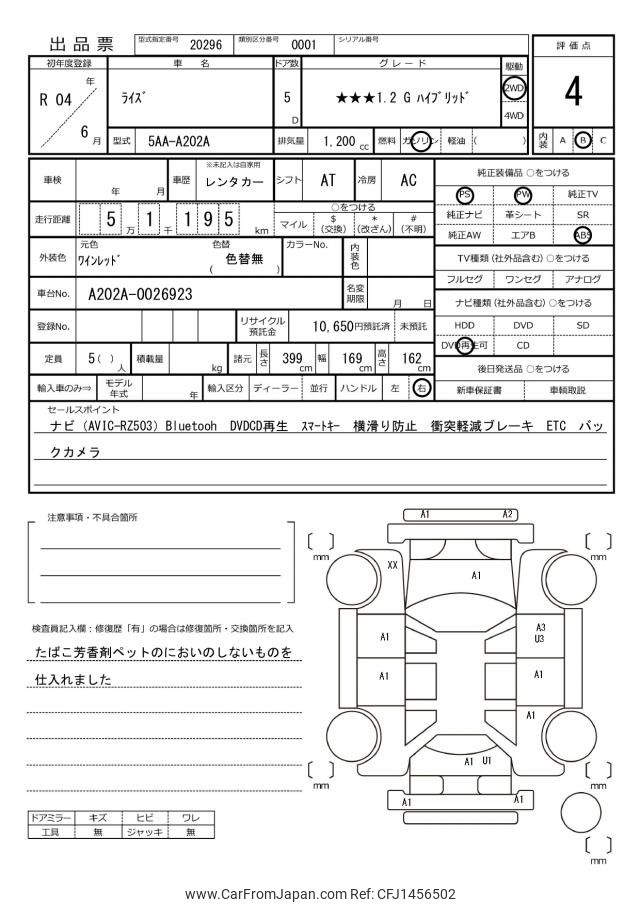 出品票 型式指定番号 20296 類別区分番号 0001 シリアル番号
評価点
4
初年度登録 車名 ドア数 グレード 駆動
R 04 年 6 月
ﾗｲｽﾞ
5 D
★★★1.2 G ﾊｲﾌﾞﾘｯﾄﾞ
2WD
4WD
型式 5AA-A202A 排気量 1,200 cc 燃料 ガソリン 軽油 ( )
内装 A B C
車検 年 月 車歴 ※未記入は自家用 レンタカー シフト AT 冷房 AC
走行距離 5 万 1 千 1 9 5 km
○をつける
マイル $ (交換) * (改ざん) # (不明)
外装色 元色 ﾜｲﾝﾚｯﾄﾞ 色替 ( 色替無 ) カラーNo. 内装色
車台No. A202A-0026923 名変期限 月 日
登録No. リサイクル預託金 10,650円預託済 未預託
定員 5( ) 人 積載量 kg 諸元 長さ 399 cm 幅 169 cm 高さ 162 cm
輸入車のみ⇒ モデル年式 年 輸入区分 ディーラー 並行 ハンドル 左 右
純正装備品 ○をつける
PS PW 純正TV
純正ナビ 革シート SR
純正AW エアB ABS
TV種類(社外品含む) ○をつける
フルセグ ワンセグ アナログ
ナビ種類(社外品含む) ○をつける
HDD DVD SD
DVD再生可 CD
後日発送品 ○をつける
新車保証書 車輌取説
セールスポイント
ナビ (AVIC-RZ503) Bluetooh DVDCD再生 ｽﾏｰﾄｷｰ 横滑り防止 衝突軽減ブレーキ ETC バッ
クカメラ
注意事項・不具合箇所
検査員記入欄：修復歴「有」の場合は修復箇所・交換箇所を記入
たばこ芳香剤ペットのにおいのしないものを
仕入れました
ドアミラー キズ ヒビ ワレ
工具 無 ジャッキ 無
A1 A2
mm mm
XX A1
A1 A3 U3
A1 A1
A1
A1 U1
mm mm
A1 A1
mm
www.CarFromJapan.com Ref: CFJ1456502